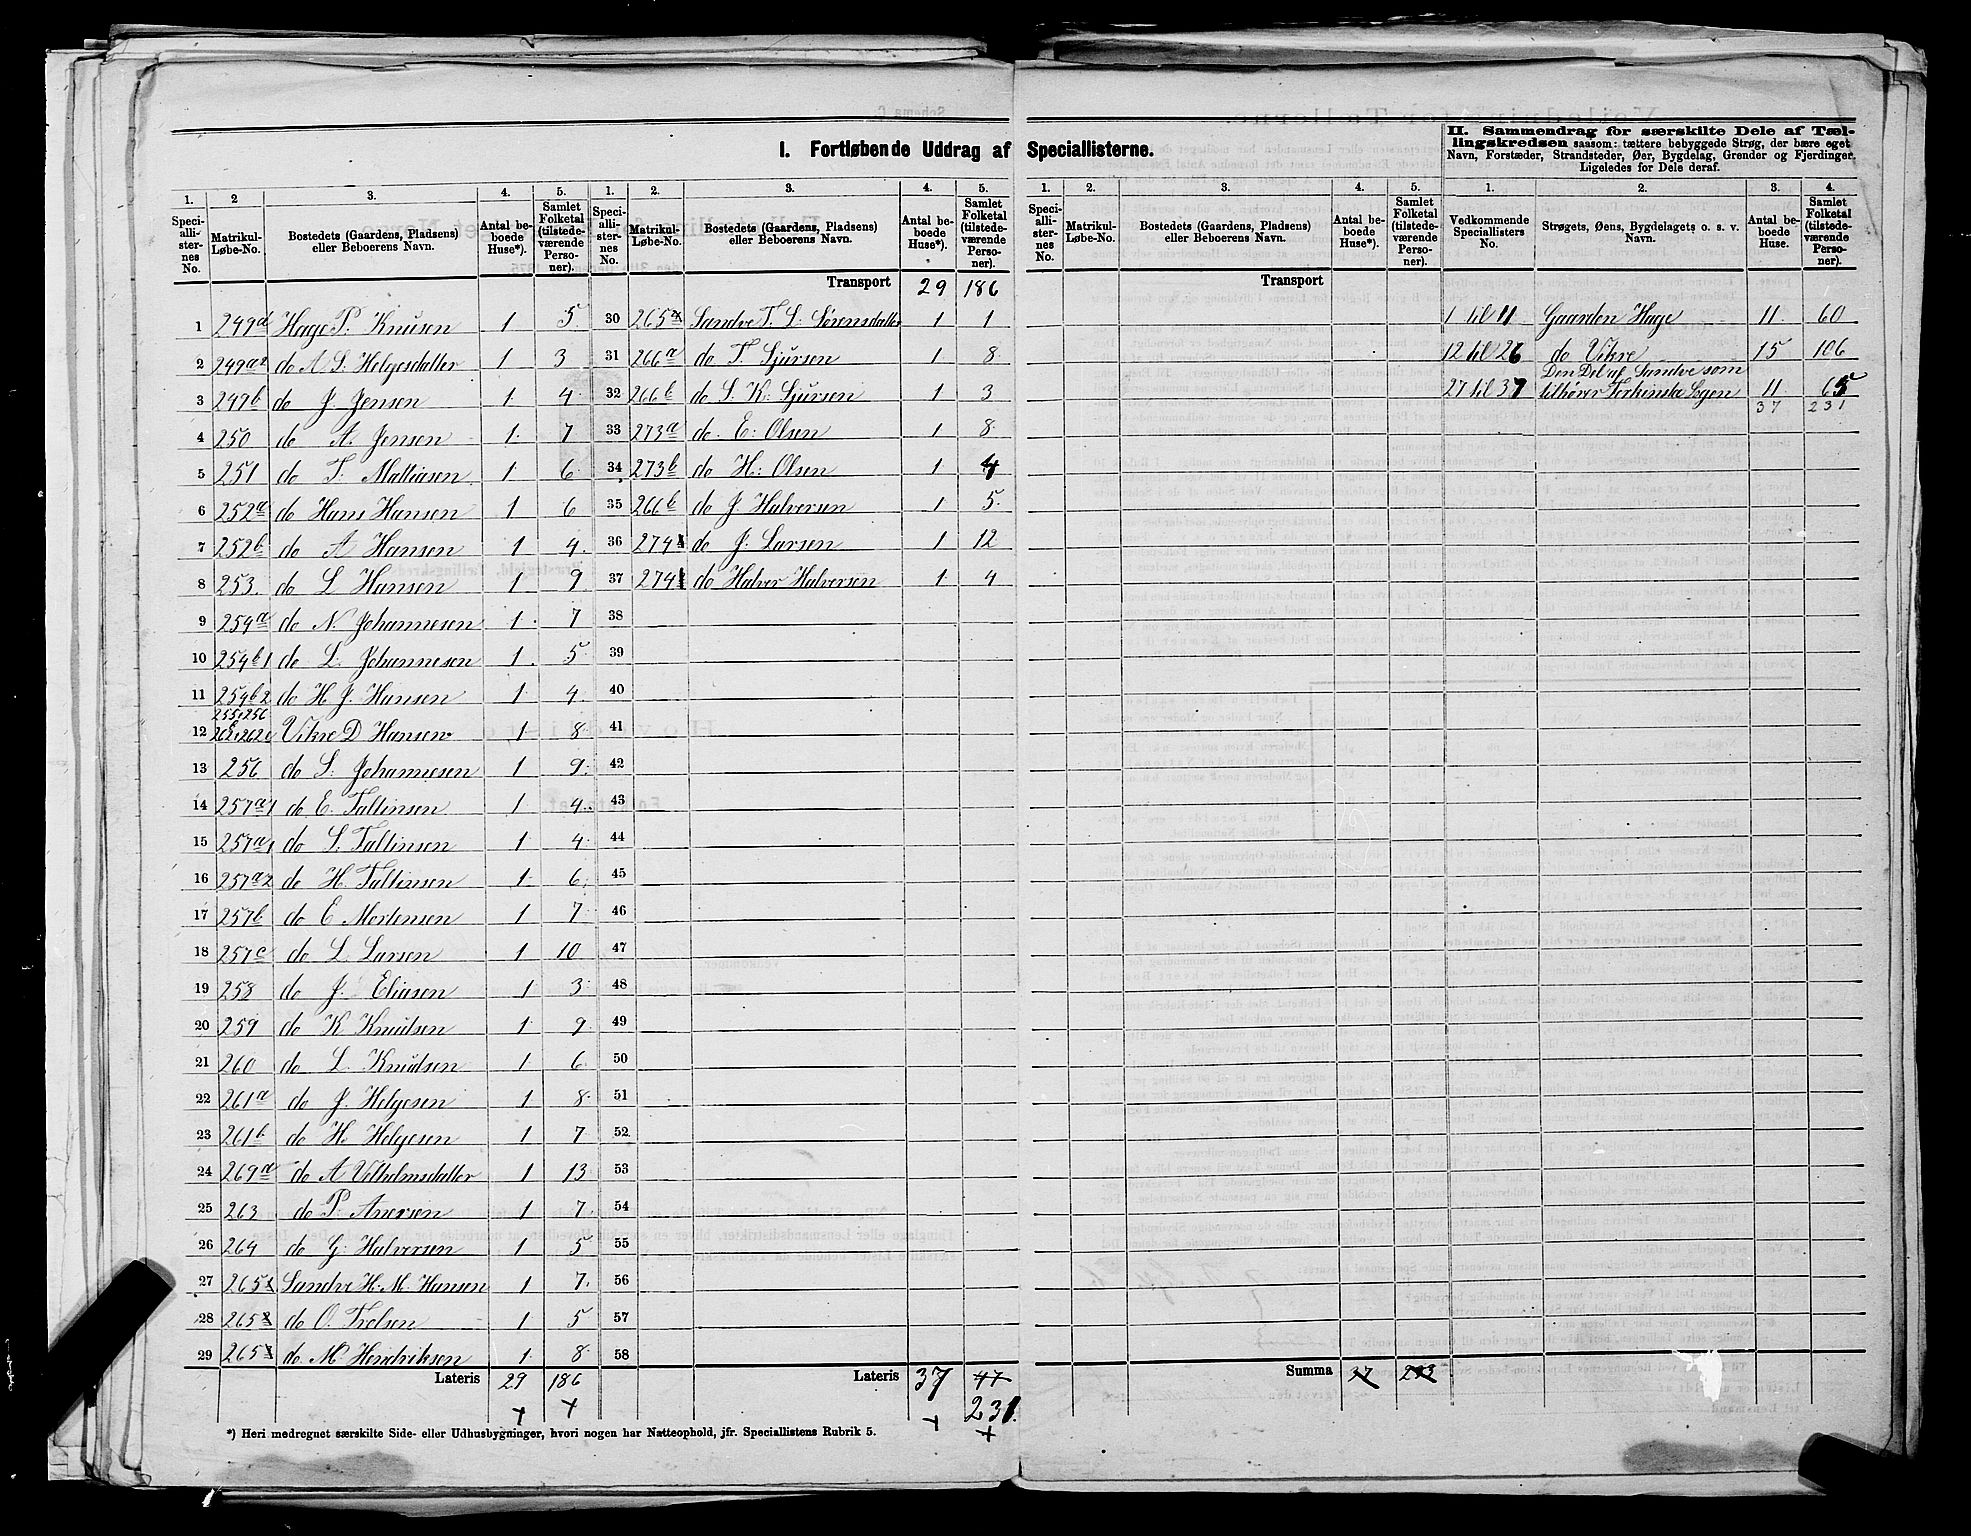 I. Fortløbende Uddrag af Speciallisterne.
II. Sammendrag for særskilte Dele af Tæl-
lingskredsen saasom: tættere bebyggede Strøg, der bære eget
Navn, Forstæder, Strandsteder, Øer, Bygdelag, Grender og Fjerdinger.
Ligeledes for Dele deraf.
1. 2 3. 4. 5. 1. 2. 3. 4. 5. 1. 2. 3. 4. 5. 1. 2. 3. 4.
Speci-alli-ster-nes No. Matrikul-Løbe-No. Bostedets (Gaardens, Pladsens) eller Beboerens Navn. Antal be-boede Huse*). Samlet Folketal (tilstede-værende Perso-ner).
Speci-alli-ster-nes No. Matrikul-Løbe-No. Bostedets (Gaardens, Pladsens) eller Beboerens Navn. Antal be-boede Huse*) Samlet Folketal (tilstede-værende Perso-ner).
Speci-alli-ster-nes No. Matrikul-Løbe-No. Bostedets (Gaardens, Pladsens) eller Beboerens Navn. Antal be-boede Huse*). Samlet Folketal (tilstede-værende Perso-ner).
Vedkommende Speciallisters No. Strøgets, Øens, Bygdelagets o. s. v. Navn. Antal be-boede Huse. Samlet Folketal (tilstede-værende Perso-ner).
1 249d Hage P. Knusen 1 5.
2 249a2 do A S. Helgesdatter 1 3
3 249b do J Jensen 1 4.
4 250 do A. Jensen 1. 7
5 251 do T. Mattiasen 1 6.
6 252a do Hans Hansen 1 6
7 252b do A Hansen 1 4.
8 253. do L Hansen 1 9.
9 254a do N. Johannesen 1. 7
10 254b1 do L. Johannesen 1. 5.
11 254b2 do H J. Hansen 1 4.
255, 256
12 Vikre D Hansen 1 8.
13 256 do S. Johannesen 1 9.
14 257a1 do E. Taltinsen 1 4.
15 257a1 do S. Taltinsen 1 4.
16 257a2 do H. Taltinsen 1. 6.
17 257b do E Mortensen 1 7.
18 257c do L Larsen 1 10
19 258 do J. Eliasen 1 3.
20 259 do K Knudsen 1. 9.
21 260 do L. Knudsen 1 6.
22 261a do J. Helgesen 1 8.
23 261b do H. Helgesen 1 7.
24 269a do A Vilhelmsdatter 1 13.
25 263 do P. Anersen 1 7.
26 264 do G. Halversen 1 5
27 265 Sandve H. M. Hansen 1 7.
28 265 do O. Trelsen 1 5
29 265 do M. Hendriksen 1. 8.
Lateris 29 186
Transport 29 186
30 265 Sandve T. L. Sørensdatter 1 1
31 266a do T Sjursen 1 8.
32 266b do S. K. Sjursen 1 3
33 273a do. E: Olsen 1 8.
34 273b do H: Olsen 1 4
35 266b do J. Halversen 1 5.
36 274 do J. Larsen 1 12
37 274 do Halver Halversen 1. 4
38
39
40
41
42
43
44
45
46
47
48
49
50
51
52.
53
54
55
56
57
58
Lateris 37 47
231.
Transport
Summa 37 233
1 til 11 Gaarden Hage 11. 60
12 til 26 do Vikre 15 106
Den Del af Sandve som
27 til 37 tilhører Ferkinstø Sogen 11 65
37 231
*) Heri medregnet særskilte Side- eller Udhusbygninger, hvori nogen har Natteophold, jfr. Speciallistens Rubrik 5.